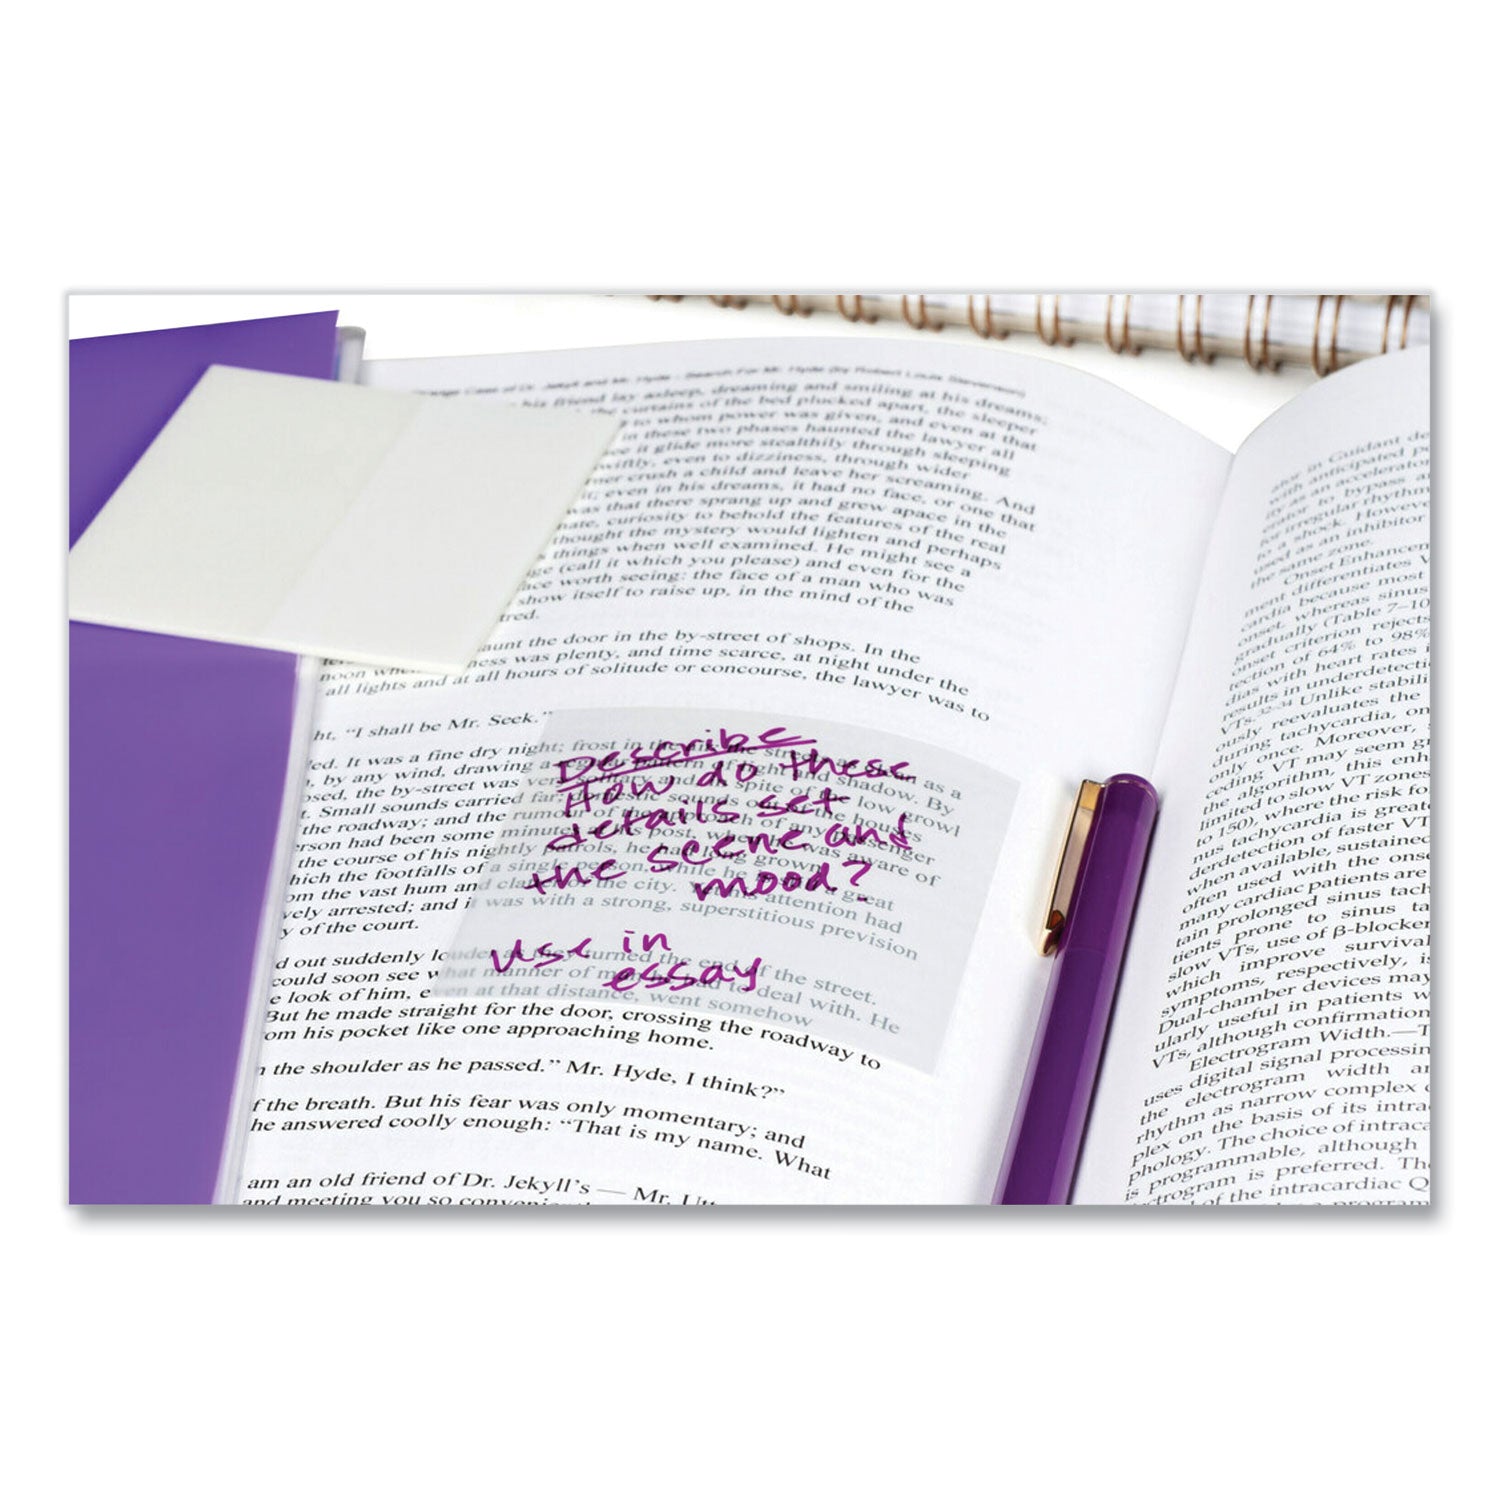 Strange Case of Dr. Jekyll and Mr. Hyde - Search For Mr. Hyde (by Robert Louis Stevenson)
his friend lay asleep, dreaming and smiling at his dreams;
the curtains of the bed plucked apart, the sleeper
to whom power was given, and even at that
in these two phases haunted the lawyer all
it glide more stealthily through sleeping
swiftly, even to dizziness, through wider
crush a child and leave her screaming. And
it; even in his dreams, it had no face, or one that
was that there sprang up and grew apace in the
curiosity to behold the features of the real
thought the mystery would lighten and perhaps
things when well examined. He might see a
(call it which you please) and even for the
face worth seeing: the face of a man who was
show itself to raise up, in the mind of the
red.
aunt the door in the by-street of shops. In the
ness was plenty, and time scarce, at night under the
noon when
all lights and at all hours of solitude or concourse, the lawyer was to
ht, “I shall be Mr. Seek.”
ed. It was a fine dry night; frost in the air; the streets as clean as a
, by any wind, drawing a regular pattern of light and shadow. By
osed, the by-street was very solitary and in spite of the low growl
t. Small sounds carried far; domestic sounds out of the houses
the roadway; and the rumour of the approach of any passenger
rson had been some minutes at his post, when he was aware of
the course of his nightly patrols, he had long grown
hich the footfalls of a single person, while he is still a great
om the vast hum and clatter of the city. Yet his attention had
vely arrested; and it was with a strong, superstitious prevision
y of the court.
d out suddenly louder as they turned the end of the street.
could soon see what manner of man he had to deal with. He
e look of him, even at that distance, went somehow
But he made straight for the door, crossing the roadway to
om his pocket like one approaching home.
n the shoulder as he passed.” Mr. Hyde, I think?”
f the breath. But his fear was only momentary; and
he answered coolly enough: “That is my name. What
am an old friend of Dr. Jekyll’s — Mr. Utt
and meeting you so convenient
Describe
How do these
details set
the scene and
mood?
Use in
essay
ator in Guidant de
with anticipated p
ity as an accelerator
erator to bypass a
for irregular rhythm
to a shock. However
used as an inhibitor
the same zone.
Onset Enhancem
ment differentiates V
cardia because most
onset, whereas sinus
gradually (Table 7–10
onset criterion rejects
tection of 64% to 98%
dias with heart rates i
results in underdetecti
VTs.32-34 Unlike stabili
ously reevaluates the
during tachycardia, on
only once. Moreover,
ceding VT may seem gr
the algorithm, this enh
limited to slow VT zones
to 150), where the risk fo
nus tachycardia is greate
derdetection of faster VT
when available, sustained
often used with the onse
many cardiac patients are
tain prolonged sinus tach
tients prone to sinus ta
slow VTs, use of β-blocker
which improve survival
symptoms, respectively, is
Dual-chamber devices may
ularly useful in patients w
VTs, although confirmation
Electrogram Width.—T
uses digital signal processin
the electrogram width an
rhythm as narrow complex o
plex on the basis of its intra
phology. The choice of intraca
is programmable, although
ectrogram is preferred. The
of the intracardiac Q
program